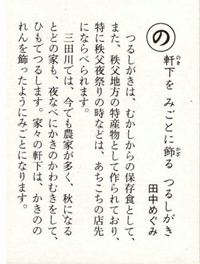 の
軒下を みごとに飾る つるしがき
のき
かざ
田中めぐみ
つるしがきは、むかしからの保存食として、
また、秩父地方の特産物として作られており、
特に秩父夜祭りの時などは、あちこちの店先
にならべられます。
三田川では、今でも農家が多く、秋になる
とどの家も、夜なべにかきのかわむきをして、
ひもでつるします。家々の軒下は、かきのの
れんを飾ったようにみごとになります。